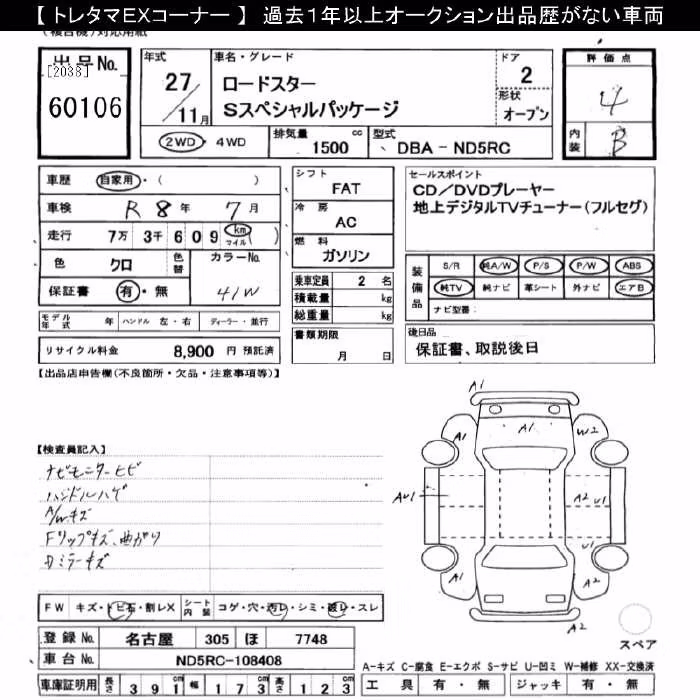 【 トレタマEXコーナー 】 過去1年以上オークション出品歴がない車両
(複合機)対応用紙
出品No.
[2038]
60106
年式
27/11月
車名・グレード
ロードスター
Sスペシャルパッケージ
ドア
2
形状
オープン
評価点
4
内装
B
2WD・4WD
排気量
1500 cc
型式
DBA - ND5RC
車歴 自家用・( )
車検 R 8年 7月
走行 7万 3千 6 0 9 km マイル ( )
色 クロ 色替 カラーNo.
保証書 有・無 41W
シフト
FAT
冷房
AC
燃料
ガソリン
乗車定員 2 名
積載量 kg
総重量 kg
書類期限
月 日
セールスポイント
CD/DVDプレーヤー
地上デジタルTVチューナー(フルセグ)
装備品
S/R 純A/W P/S P/W ABS
純TV 純ナビ 革シート 外ナビ エアB
ナビ型番:
後日品
保証書、取説後日
モデル年式 年 ハンドル 左・右 ディーラー・並行
リサイクル料金 8,900 円 預託済
【出品店申告欄(不良箇所・欠品・注意事項等)】
【検査員記入】
ナビモニターヒビ
ハンドルハゲ
A/Wキズ
Fリップキズ、曲がり
Dミラーキズ
A1
A1
A1
W2
AU1
A2
U1
U1
A1
A2
A2
スペア
FW キズ・トビ石・割レX シート内装 コゲ・穴・汚レ・シミ・破レ・スレ
登録No. 名古屋 305 ほ 7748
車台No. ND5RC-108408
車庫証明用 長さ 3 9 1 cm 幅 1 7 3 cm 高さ 1 2 3 cm
A-キズ C-腐食 E-エクボ S-サビ U-凹ミ W-補修 XX-交換済
工具 有・無 ジャッキ 有・無